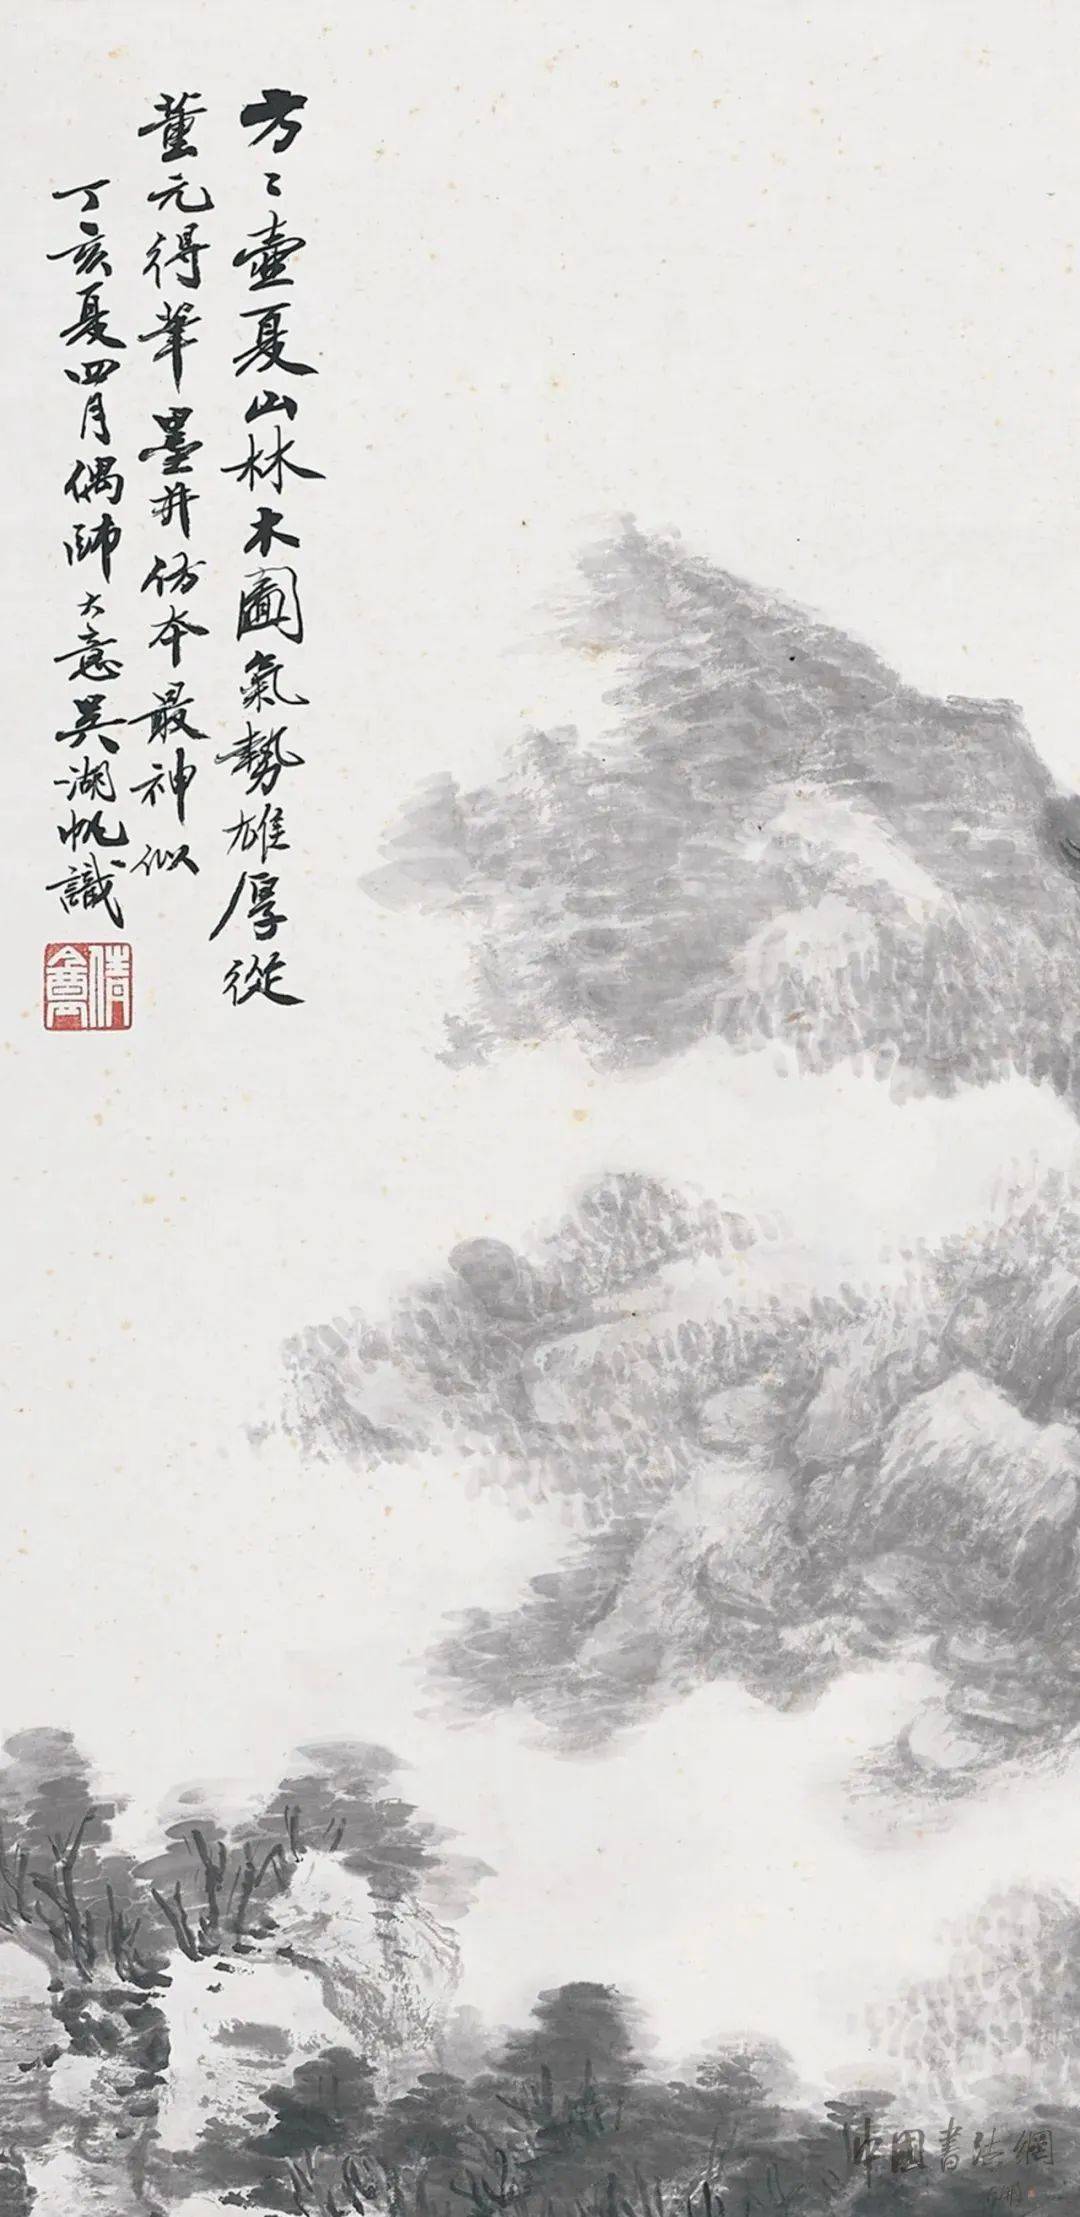 方：壺夏山林木圖氣勢雄厚從
董元得筆墨井仿本最神似
丁亥夏四月偶師大意吳湖帆識
倩盦
中國書法網